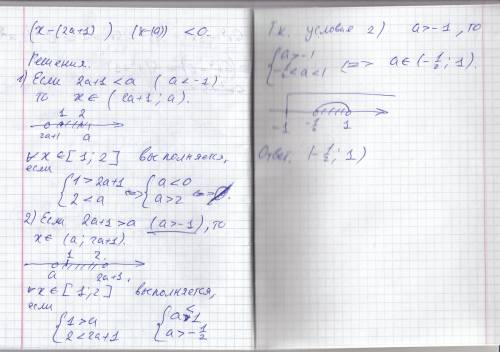 (x-(2a+1)) (x-(a)) <0.
Решения.
1) Если 2a+1<a (a<-1)
то x∈(2a+1; a).
1 2
2a+1 a
∀x∈[1; 2] выполняется,
если
{1>2a+1 {a<0
{2<a <=> {a>2 <=> ∅.
2) Если 2a+1>a (a>-1), то
x∈(a; 2a+1).
1 2
a 2a+1,
∀x∈[1; 2] выполняется,
если
{1>a {a<1
{2<2a+1 {a>-1/2
Т.к. условие 2) a>-1, то
{a>-1
{-1/2<a<1 <=> a∈(-1/2; 1).
-1 -1/2 1
Ответ. (-1/2; 1)